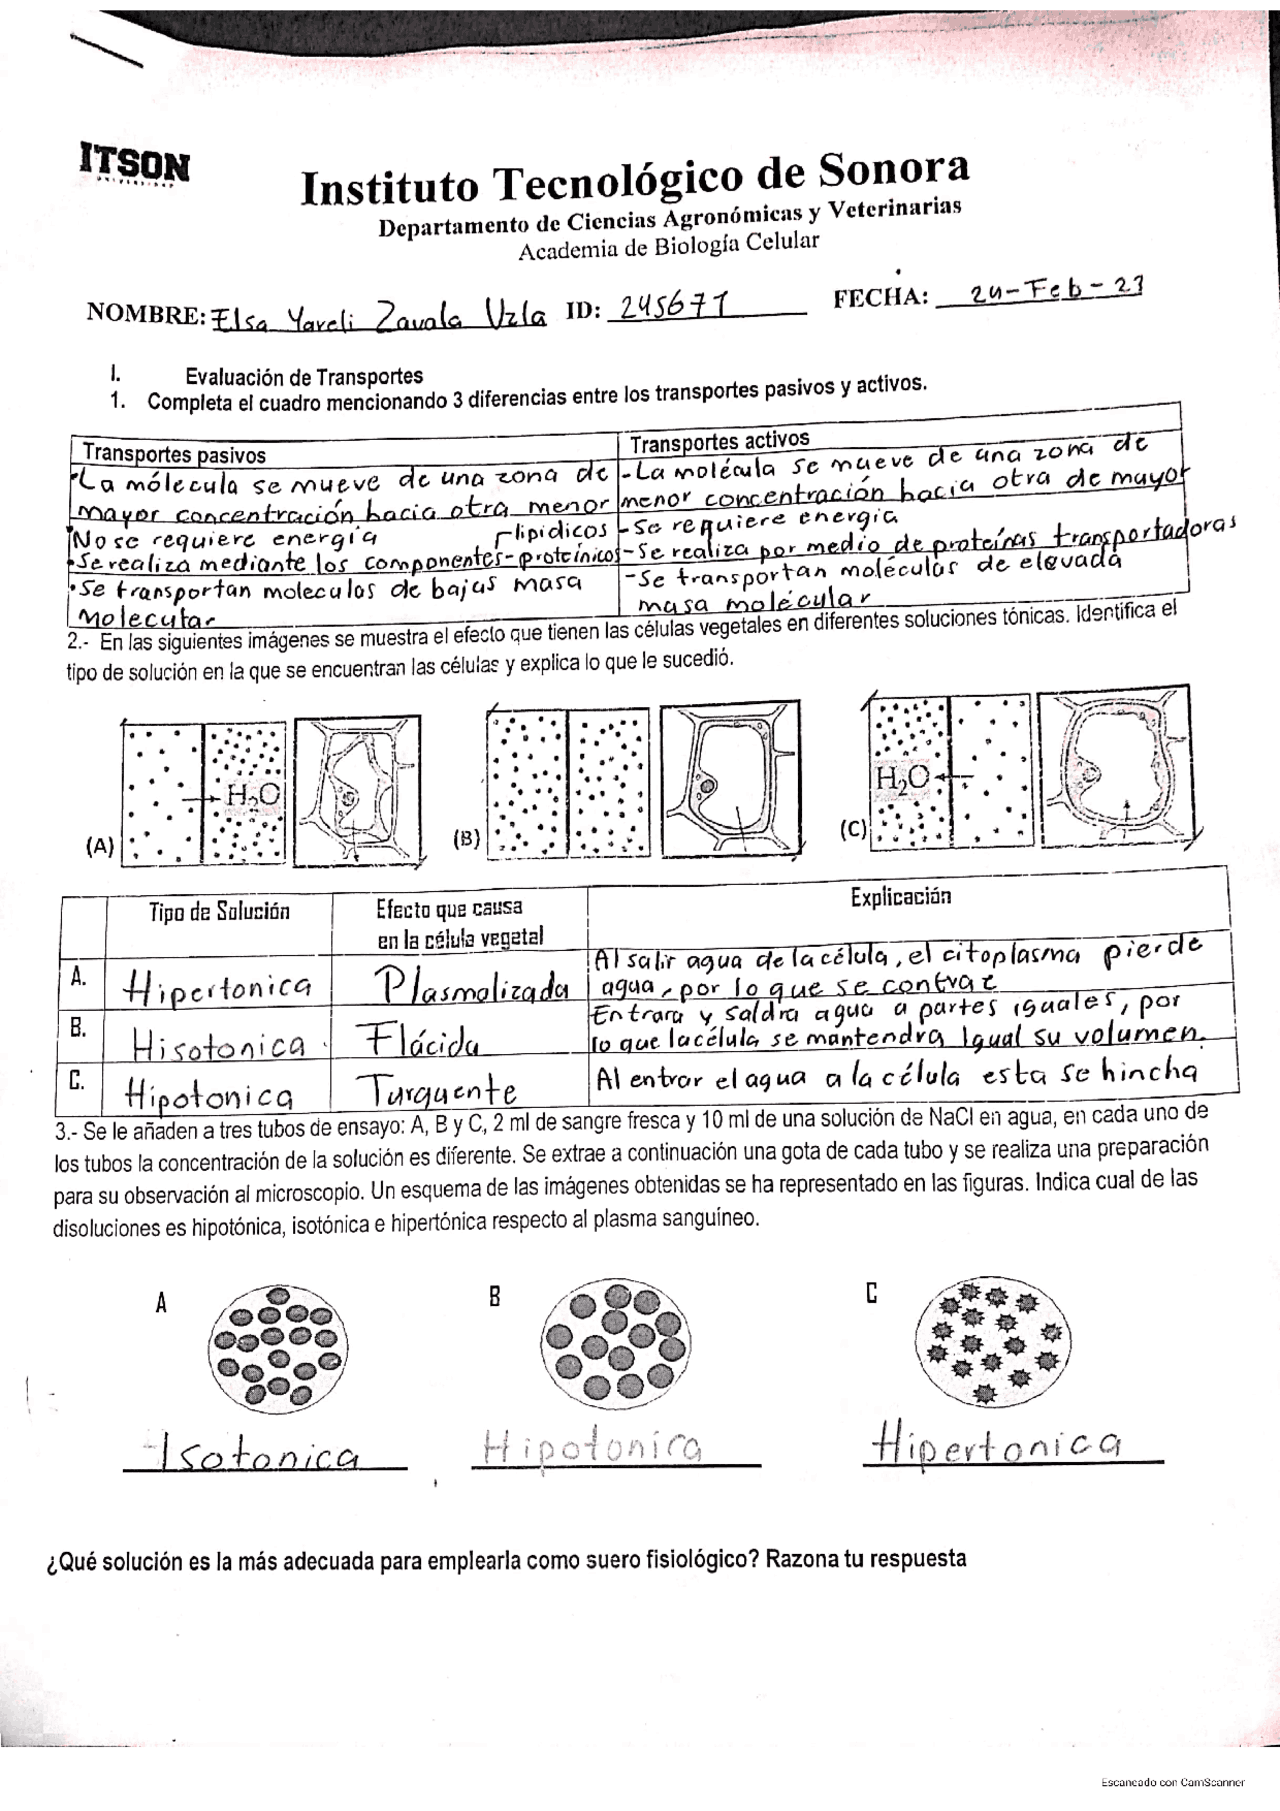 ITSON
UNIVERSIDAD
Instituto Tecnológico de Sonora
Departamento de Ciencias Agronómicas y Veterinarias
Academia de Biología Celular
NOMBRE: Elsa Yareli Zavala Uzla ID: 245671 FECHA: 24-Feb-23
I. Evaluación de Transportes
1. Completa el cuadro mencionando 3 diferencias entre los transportes pasivos y activos.
Transportes pasivos
·La mólecula se mueve de una zona de
mayor concentración hacia otra menor
No se requiere energía
·Se realiza mediante los componentes lipídicos
-proteínicos
·Se transportan moleculas de bajas masa
Molecular
Transportes activos
-La molécula se mueve de una zona de
menor concentración hacia otra de mayor
-Se requiere energía
-Se realiza por medio de proteínas transportadoras
-Se transportan moléculas de elevada
masa molécular
2.- En las siguientes imágenes se muestra el efecto que tienen las células vegetales en diferentes soluciones tónicas. Identifica el
tipo de solución en la que se encuentran las células y explica lo que le sucedió.
(A) H2O
(B)
(C) H2O
Tipo de Solución Efecto que causa
en la célula vegetal Explicación
A. Hipertonica Plasmolizada Al salir agua de la célula, el citoplasma pierde
agua, por lo que se contrae
B. Hisotonica Flácida Entrara y saldra agua a partes iguales, por
lo que la célula se mantendra Igual su volumen.
C. Hipotonica Turguente Al entrar el agua a la célula esta se hincha
3.- Se le añaden a tres tubos de ensayo: A, B y C, 2 ml de sangre fresca y 10 ml de una solución de NaCl en agua, en cada uno de
los tubos la concentración de la solución es diferente. Se extrae a continuación una gota de cada tubo y se realiza una preparación
para su observación al microscopio. Un esquema de las imágenes obtenidas se ha representado en las figuras. Indica cual de las
disoluciones es hipotónica, isotónica e hipertónica respecto al plasma sanguíneo.
A B C
Isotonica Hipotonica Hipertonica
¿Qué solución es la más adecuada para emplearla como suero fisiológico? Razona tu respuesta
Escaneado con CamScanner